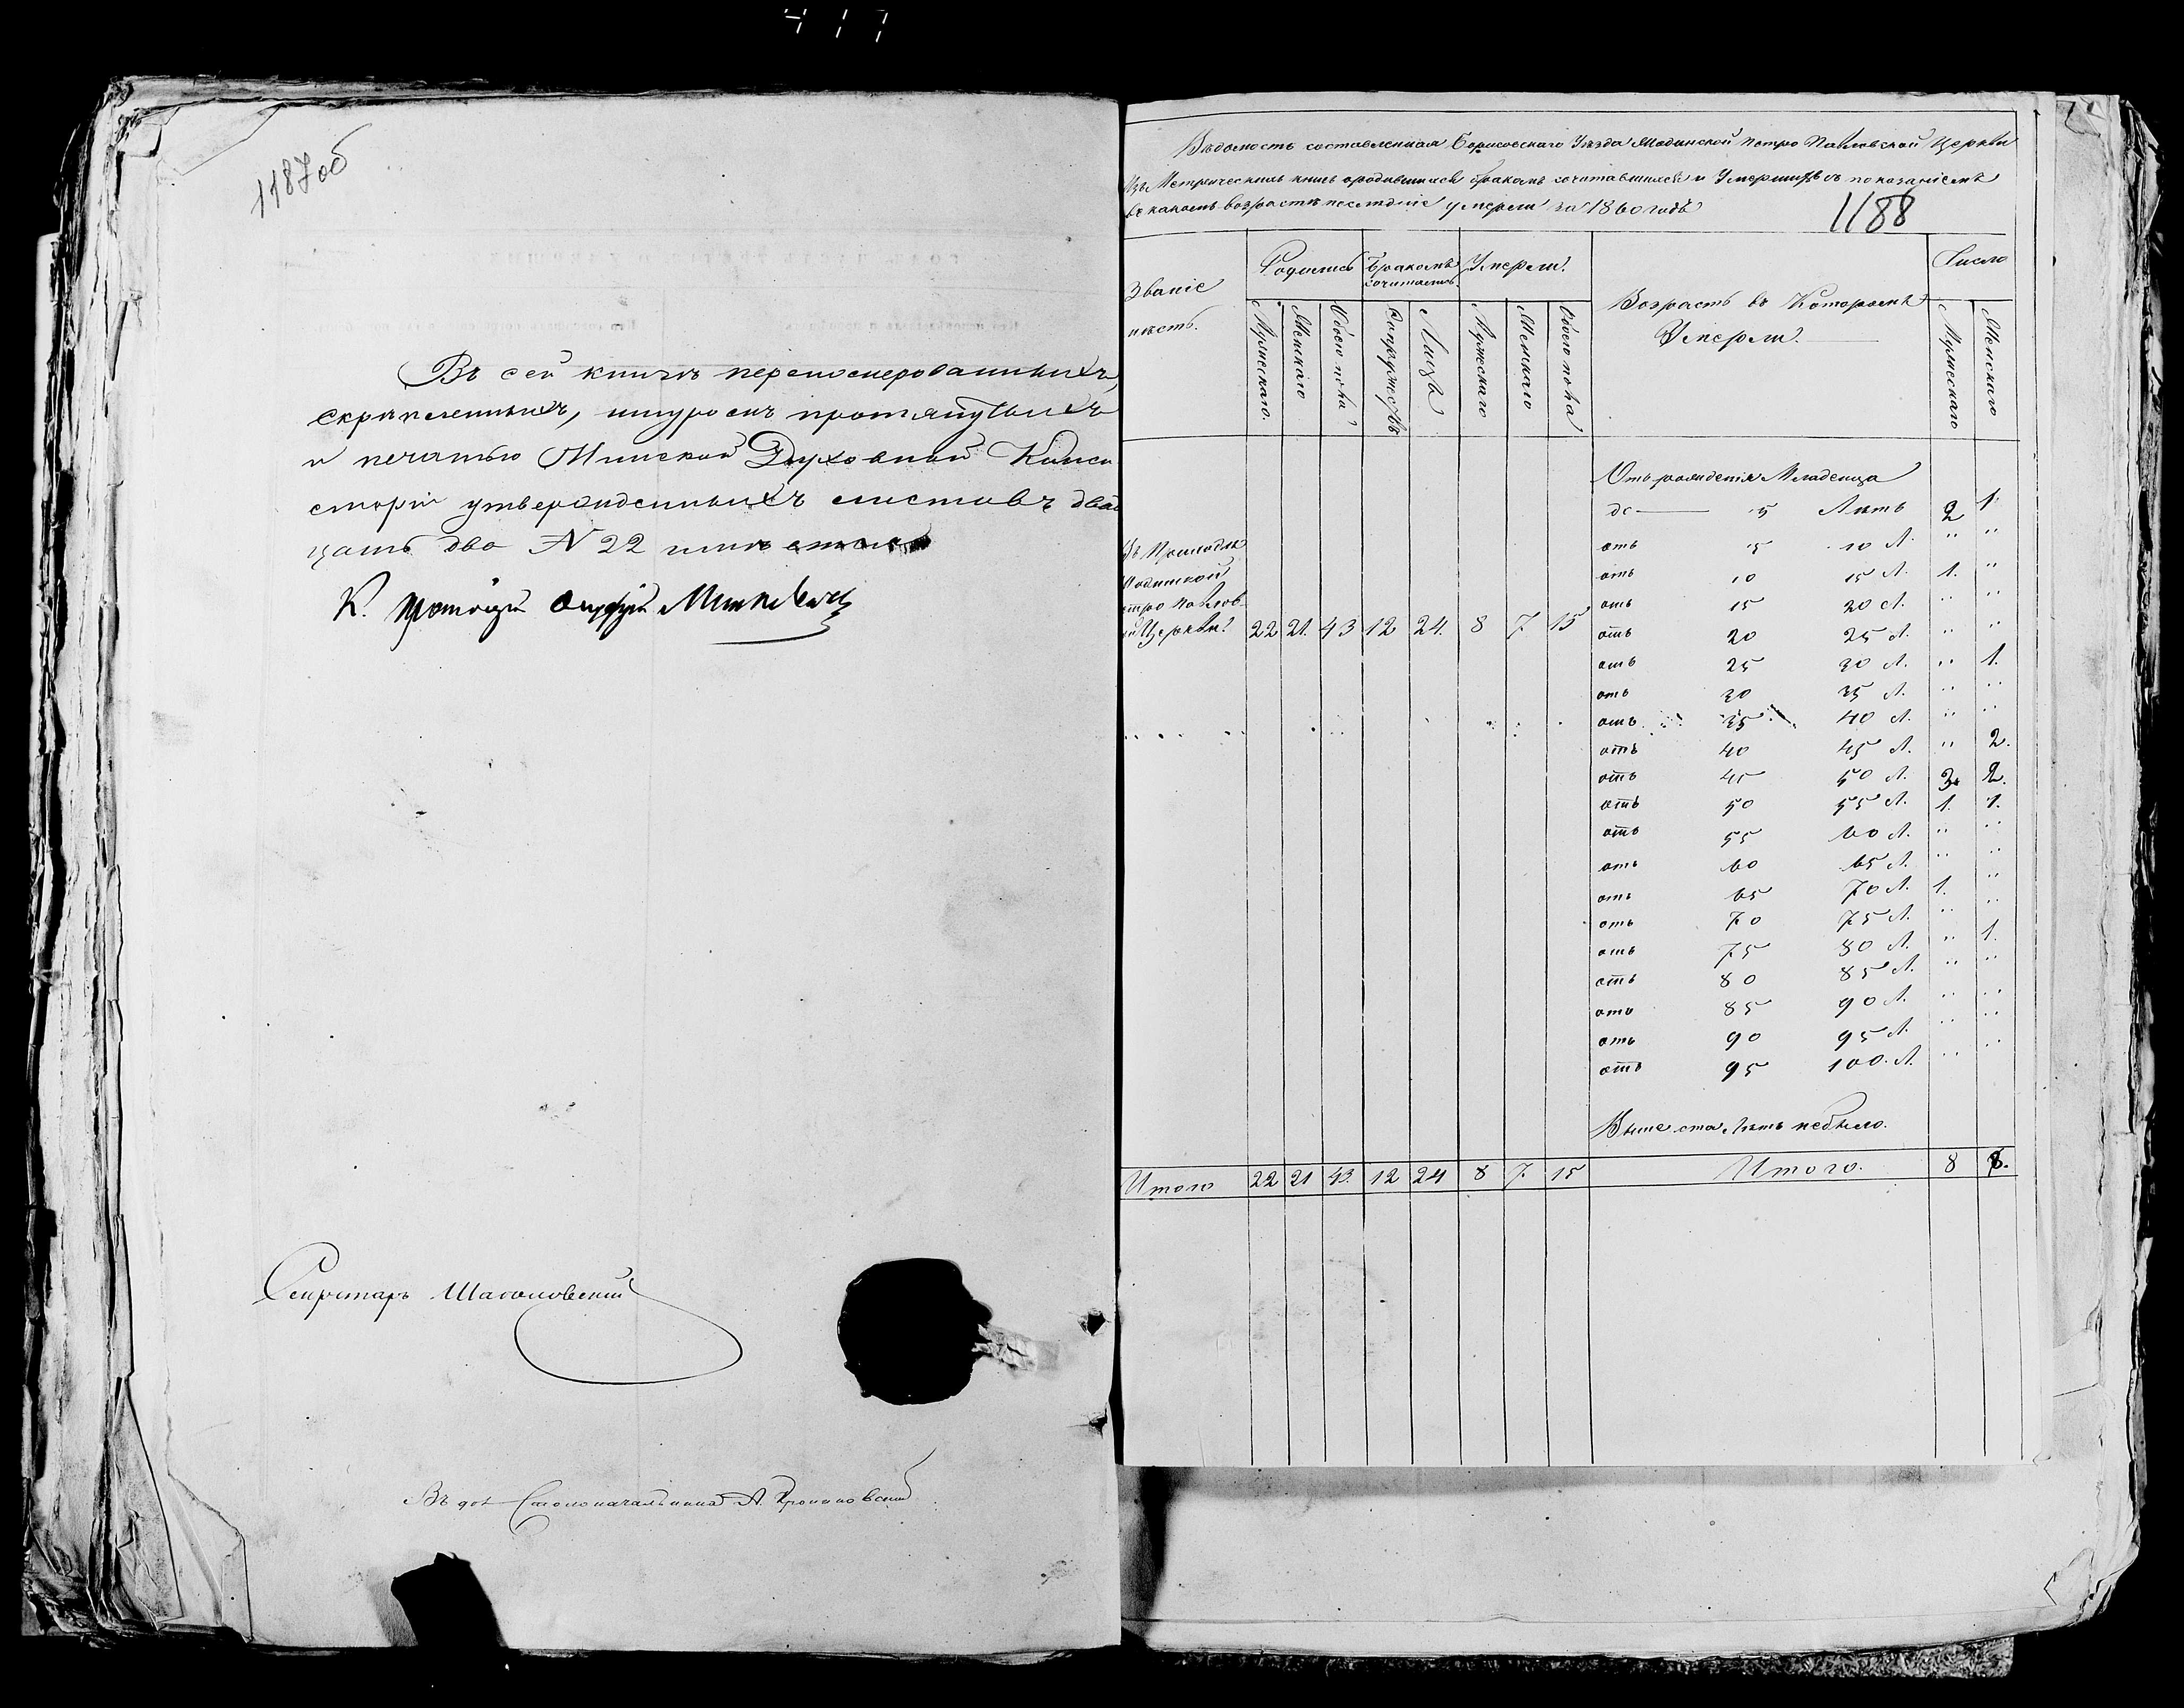 1187об
Въ сей книгѣ перенумерованныхъ,
скрѣпленныхъ, шнуромъ протянутыхъ
и печатью Минской Духовной Конси
сторіи утвержденныхъ листовъ двад
цать два N 22
К. Протоіерей
Секретарь
Въ дол Столоначальника А.
Вѣдомость составленная Борисовскаго Уѣзда Петро Павловской Церкви
Изъ Метрическихъ книгъ о родившихся бракомъ сочетавшихся и Умершихъ съ показаніемъ
въ какомъ возрастѣ послѣдніе умерли за 1860 годъ
1188
Званіе
мѣстъ.
Родились
Бракомъ
сочитались
Умерли.
Возрастъ въ Которомъ
Умерли.
Число
Мужескаго.
Женскаго
Обоего пола
Супружествъ
Лица
Мужескаго
Женскаго
Обоего пола
Мужескаго
Женскаго
Отъ рожденія Младенца
до 5 Лѣтъ 2 1.
отъ 5 10 Л. " "
отъ 10 15 Л. 1. "
отъ 15 20 Л. " "
отъ 20 25 Л. " "
отъ 25 30 Л. " 1.
отъ 30 35 Л. " "
отъ 35 40 Л. " "
отъ 40 45 Л. " 2.
отъ 45 50 Л. 3. 2.
отъ 50 55 Л. 1. 1.
отъ 55 60 Л. " "
отъ 60 65 Л. " "
отъ 65 70 Л. 1. "
отъ 70 75 Л. " "
отъ 75 80 Л. " 1.
отъ 80 85 Л. " "
отъ 85 90 Л. " "
отъ 90 95 Л. " "
отъ 95 100. Л. " "
Въ Приходѣ
Петро Павлов-
Церкви. 22 21. 43 12 24. 8 7. 15
Выше ста Лѣтъ небыло.
Итого 22 21 43. 12 24 8 7. 15 Итого. 8 8.